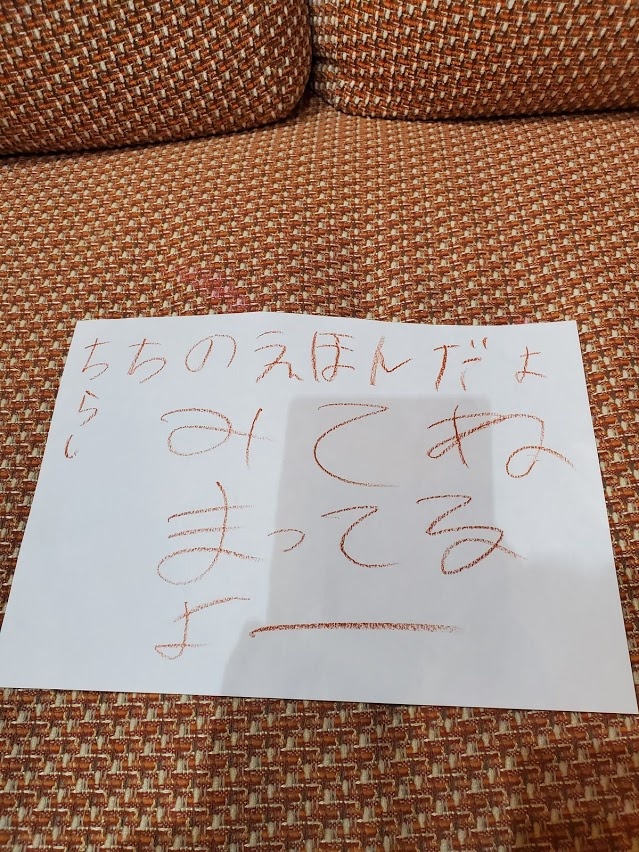 ちちのえほんだよ
らし
みてね
まってる
よー